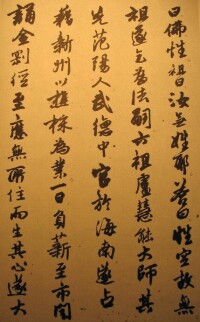 曰佛性祖曰汝無姓耶答曰性空故無
祖遂乞為法嗣六祖盧慧能大師其
先范陽人武德中官於海南遂占
籍新州以樵採為業一日負薪至市聞
誦金剛經至應無所住而生其心遂大